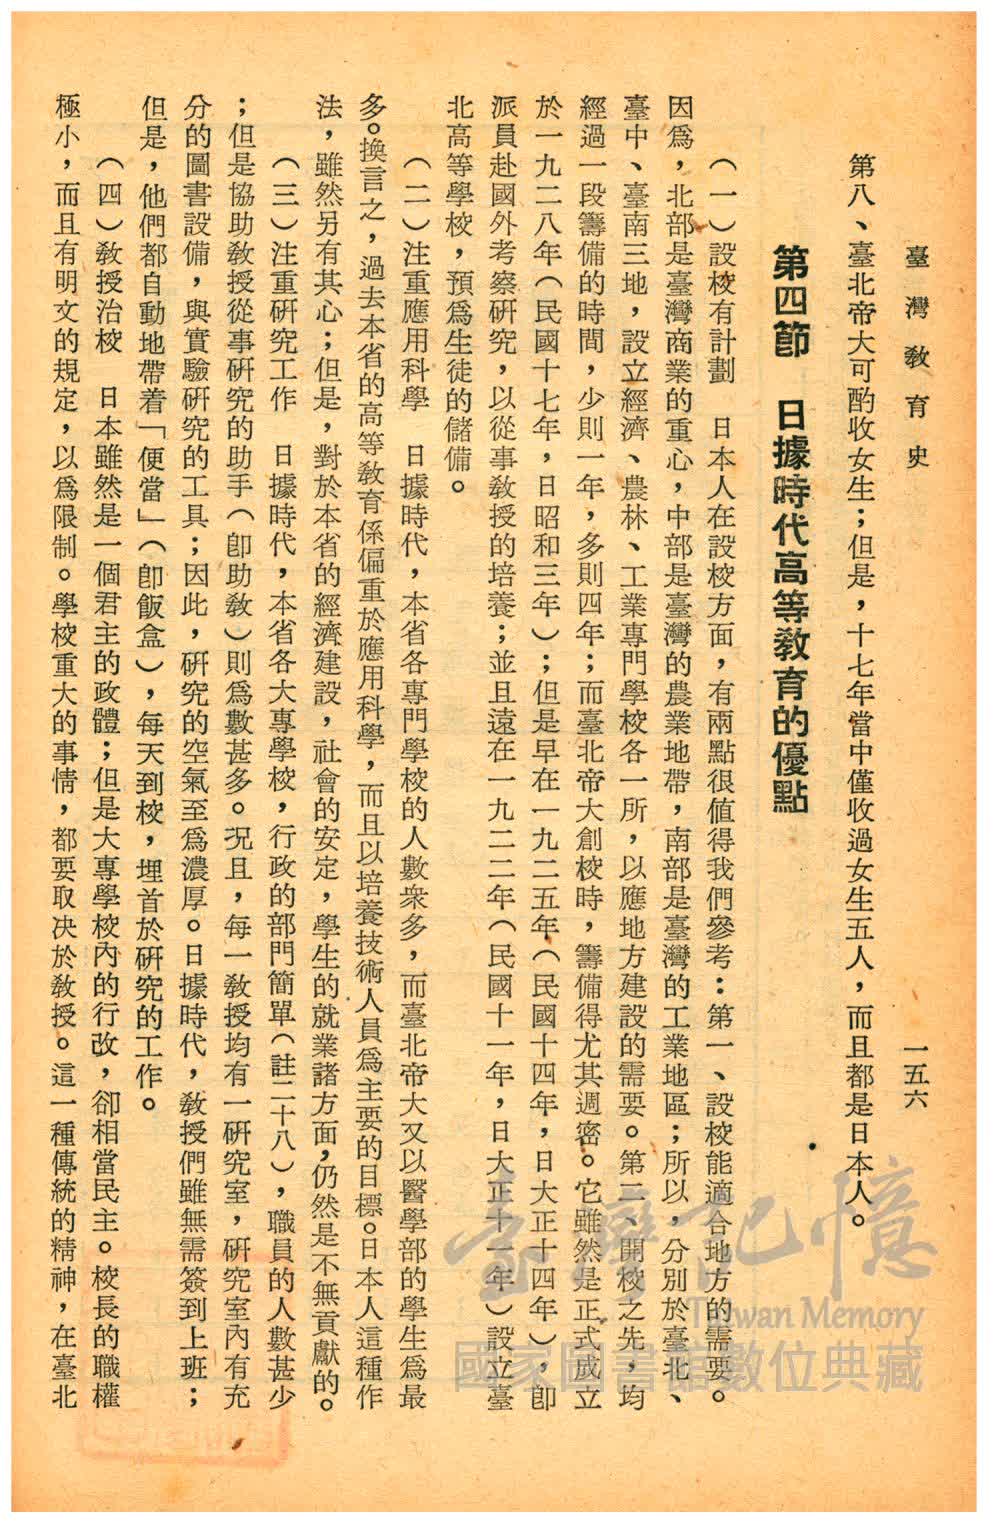 臺灣教育史
一五六
第八、臺北帝大可酌收女生；但是，十七年當中僅收過女生五人，而且都是日本人。
第四節　日據時代高等教育的優點
（一）設校有計劃　日本人在設校方面，有兩點很值得我們參考：第一、設校能適合地方的需要。
因爲，北部是臺灣商業的重心，中部是臺灣的農業地帶，南部是臺灣的工業地區；所以，分別於臺北、
臺中、臺南三地，設立經濟、農林、工業專門學校各一所，以應地方建設的需要。第二、開校之先，均
經過一段籌備的時間，少則一年，多則四年；而臺北帝大創校時，籌備得尤其週密。它雖然是正式成立
於一九二八年（民國十七年，日昭和三年）；但是早在一九二五年（民國十四年，日大正十四年），卽
派員赴國外考察研究，以從事教授的培養；並且遠在一九二二年（民國十一年，日大正十一年）設立臺
北高等學校，預爲生徒的儲備。
（二）注重應用科學　日據時代，本省各專門學校的人數衆多，而臺北帝大又以醫學部的學生爲最
多。換言之，過去本省的高等教育係偏重於應用科學，而且以培養技術人員爲主要的目標。日本人這種作
法，雖然另有其心；但是，對於本省的經濟建設，社會的安定，學生的就業諸方面，仍然是不無貢獻的。
（三）注重研究工作　日據時代，本省各大專學校，行政的部門簡單（註二十八），職員的人數甚少
；但是協助教授從事研究的助手（卽助教）則爲數甚多。況且，每一教授均有一研究室，研究室內有充
分的圖書設備，與實驗研究的工具；因此，研究的空氣至爲濃厚。日據時代，教授們雖無需簽到上班；
但是，他們都自動地帶着「便當」（卽飯盒），每天到校，埋首於研究的工作。
（四）教授治校　日本雖然是一個君主的政體；但是大專學校內的行改，卻相當民主。校長的職權
極小，而且有明文的規定，以爲限制。學校重大的事情，都要取决於教授。這一種傳統的精神，在臺北
臺灣記憶
Taiwan Memory
國家圖書館數位典藏